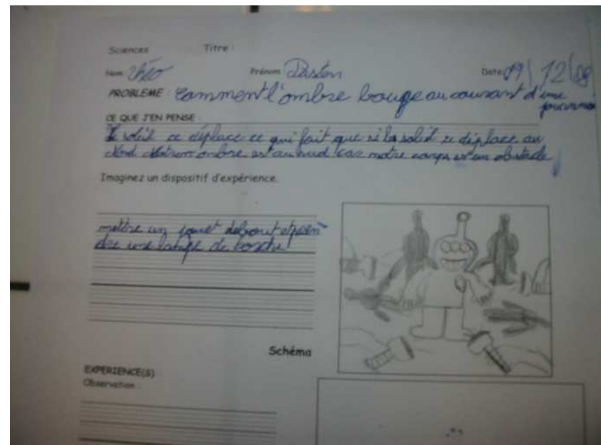 Sciences Titre :
Nom Théo Prénom Baston Date 09/12/08
PROBLEME : Comment l'ombre bouge au courant d'une journée
CE QUE J'EN PENSE :
le soleil ce déplace ce qui fait que si le soleil ce déplace au
nord notre ombre est au sud car notre corps est un obstacle
Imaginez un dispositif d'expérience.
mettre un jouet debout et pren
dre une lampe de torche
Schéma
EXPERIENCE(S)
Observation :